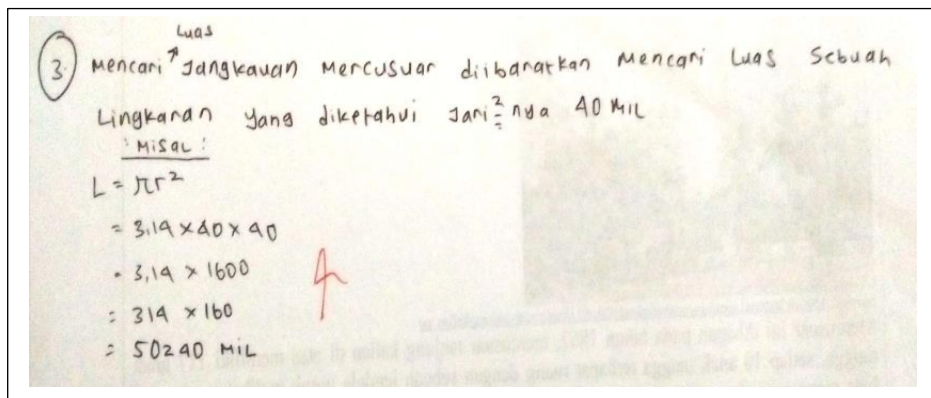 Luas
3. Mencari Jangkauan Mercusuar diibaratkan Mencari Luas Sebuah
Lingkaran yang diketahui Jari² nya 40 MIL
Misal :
L = πr²
= 3,14 x 40 x 40
= 3,14 x 1600
= 314 x 160
= 50240 MIL
4